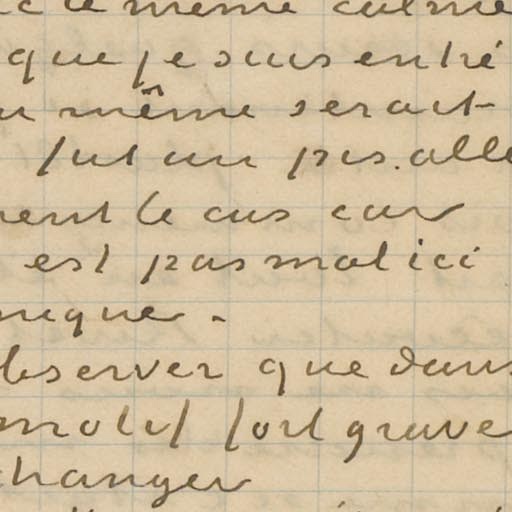 même calme
que je suis entré
même serait
fut un pis. alle
ent le cas car
est pas mal ici
nique.
bserver que dans
motif fort grave
changer